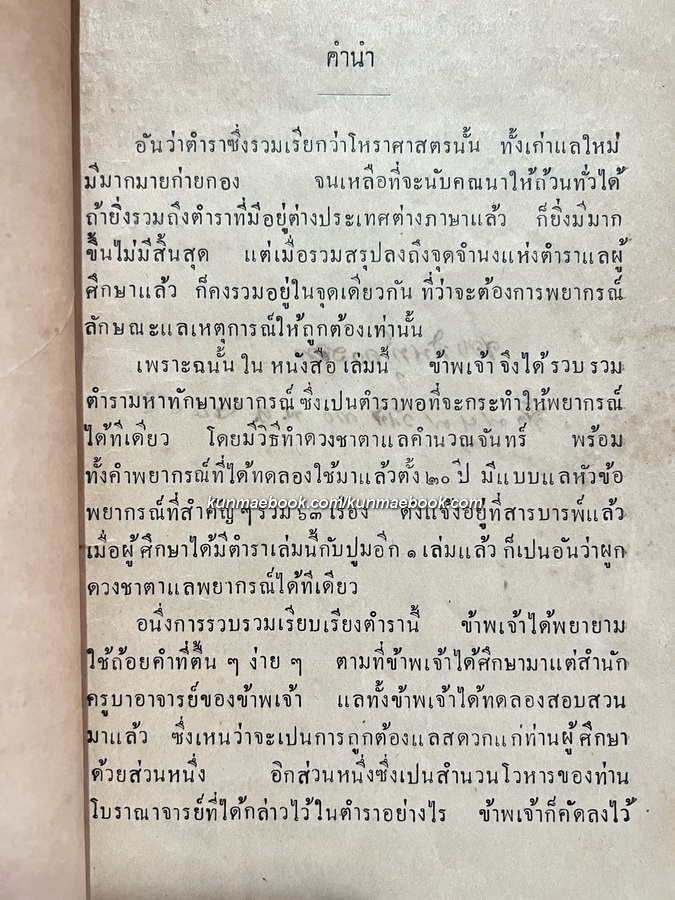 คำนำ
อันว่าตำราซึ่งรวมเรียกว่าโหราศาสตรนั้น ทั้งเก่าแลใหม่
มีมากมายก่ายกอง จนเหลือที่จะนับคณนาให้ถ้วนทั่วได้
ถ้ายิ่งรวมถึงตำราที่มีอยู่ต่างประเทศต่างภาษาแล้ว ก็ยิ่งมีมาก
ขึ้นไม่มีสิ้นสุด แต่เมื่อรวมสรุปลงถึงจุดจำนงแห่งตำราแลผู้
ศึกษาแล้ว ก็คงรวมอยู่ในจุดเดียวกัน ที่ว่าจะต้องการพยากรณ์
ลักษณะแลเหตุการณ์ให้ถูกต้องเท่านั้น
เพราะฉนั้น ใน หนังสือ เล่มนี้ ข้าพเจ้า จึงได้ รวบ รวม
ตำรามหาทักษาพยากรณ์ ซึ่งเปนตำราพอที่จะกระทำให้พยากรณ์
ได้ทีเดียว โดยมีวิธีทำดวงชาตาแลคำนวณจันทร์ พร้อม
ทั้งคำพยากรณ์ที่ได้ทดลองใช้มาแล้วตั้ง ๒๐ ปี มีแบบแลหัวข้อ
kunmaebook.com/kunmaebook.com
พยากรณ์ที่สำคัญ ๆ รวม ๖๓ เรื่อง ดังแจ้งอยู่ที่สารบารพ์แล้ว
เมื่อผู้ศึกษาได้มีตำราเล่มนี้กับปูมอีก ๑ เล่มแล้ว ก็เปนอันว่าผูก
ดวงชาตาแลพยากรณ์ได้ทีเดียว
อนึ่งการรวบรวมเรียบเรียงตำรานี้ ข้าพเจ้าได้พยายาม
ใช้ถ้อยคำที่ตื้น ๆ ง่าย ๆ ตามที่ข้าพเจ้าได้ศึกษามาแต่สำนัก
ครูบาอาจารย์ของข้าพเจ้า แลทั้งข้าพเจ้าได้ทดลองสอบสวน
มาแล้ว ซึ่งเหนว่าจะเปนการถูกต้องแลสดวกแก่ท่านผู้ศึกษา
ด้วยส่วนหนึ่ง อีกส่วนหนึ่งซึ่งเปนสำนวนโวหารของท่าน
โบราณาจารย์ที่ได้กล่าวไว้ในตำราอย่างไร ข้าพเจ้าก็คัดลงไว้